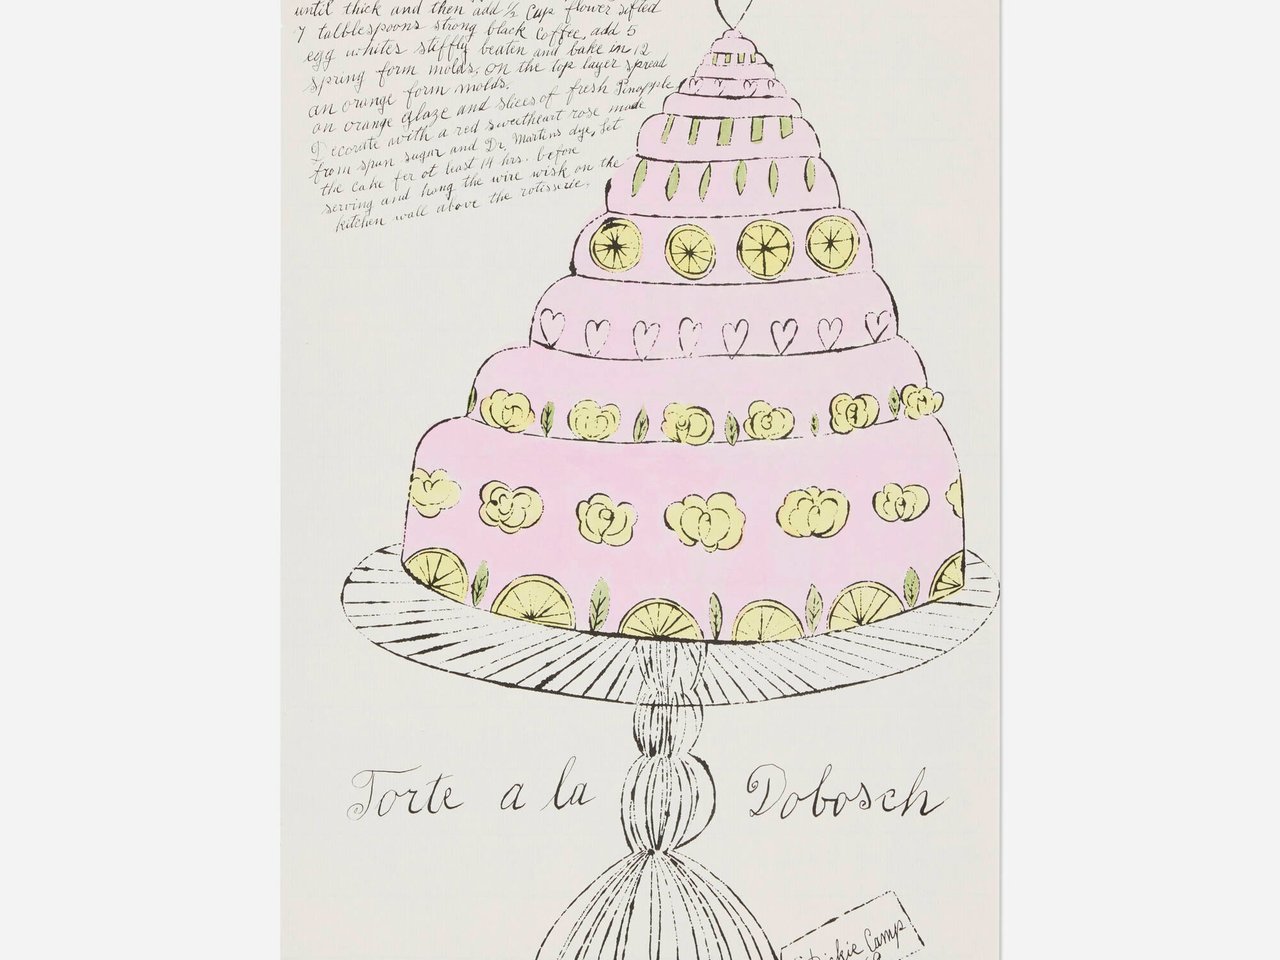 until thick and then add ½ cup flower sifted
7 talblespoons strong black coffee, add 5
egg whites stiffly beaten and bake in 12
spring form molds. on the top layer spread
an orange form molds.
an orange glaze and slices of fresh Pinopple
Decorate with a red sweetheart rose made
from spun sugar and Dr. Martins dye, let
the cake fer at least 14 hrs. before
serving and hang the wire wisk on the
kitchen wall above the rotisserie.
Torte a la Dobosch
Dickie Camp